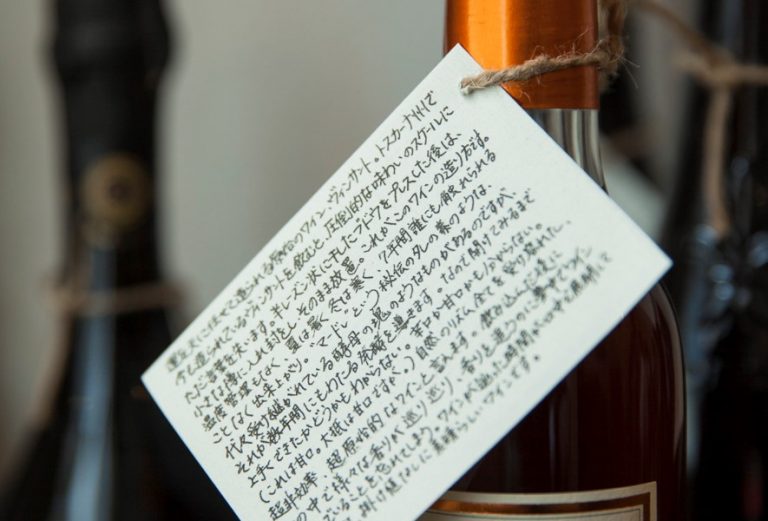 運を天に任せて造られる奇怡のワイン、ヴィンサント。トスカーナ州で
今も造られているヴィンサントを飲むと、圧倒的な味わいのスケールに
ただ言葉を失います。半レーズン状に干したブドウをプレスした後は、
小さな樽に入れ封をし、そのまま放置。これがこのワインの造り方です。
温度管理もなく、夏は暑く、冬は寒く、7年間誰にも触れられる
ことなく出来上がり。"マードレ"という秘伝のタレの素のようは、
代々受け継がれている酵母の塊のようなものがあるのですが、
それが数年間にもわたる発酵を導きます。なので開けてみるまで
上手くできたかどうかもわからない。辛口か甘口かも分からない。
(これは甘口。大抵は甘口ですが。) 自然のリズム全てを受け容れた、
超非効率、超原始的なワインと言えます。飲み込んだ後に
の中で様々な香りが巡り巡り、香りを追うのに夢中でワイン
いることを忘れてしまう。ワインが造った時間が
掛け値なしに素晴らしいワインです。